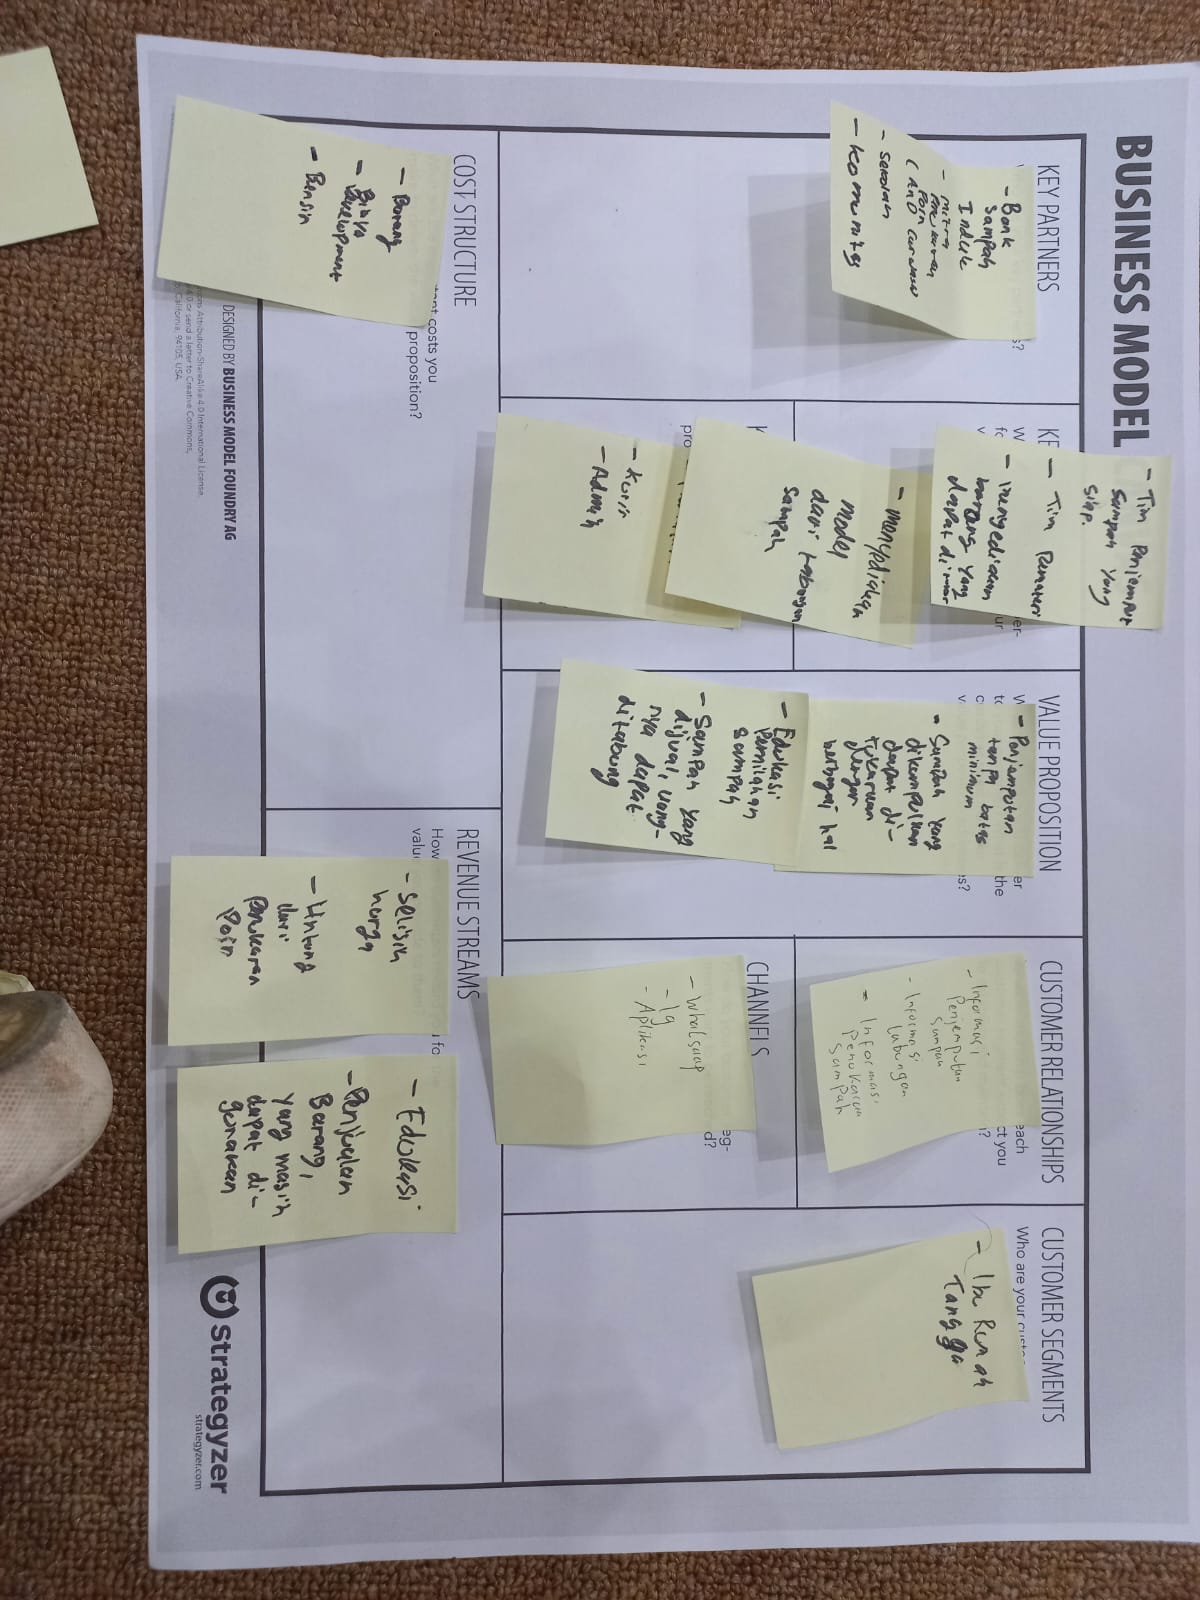 BUSINESS MODEL
KEY PARTNERS
- Bank
Sampah
Induk
- mitra
Penukaran
Poin
(AnD carwash
- Sekolah
- Komunitas
KE
- Tim Penjemput
Sampah yang
siap.
- Tim Pemateri
- menyediakan
barang yang
dapat di
- menyediakan
model
dari tabungan
sampah
K
pro
- Kurir
- Admin
VALUE PROPOSITION
- Penjemputan
tanpa batas
minimum
- Sampah yang
dikumpulkan
dapat di-
tukarkan
dengan
berbagai hal
- Edukasi
Pemilahan
sampah
- Sampah yang
dijual, uang-
nya dapat
ditabung
CUSTOMER RELATIONSHIPS
each
ct you
- Informasi
Penjemputan
Sampah
- Informasi
Tabungan
- Informasi
Penukaran
Sampah
CHANNELS
eg-
d?
- Whatsaap
- Ig
- Aplikasi
CUSTOMER SEGMENTS
Who are your custo
- Ibu Rumah
Tangga
COST STRUCTURE
costs you
proposition?
- Barang
- Biaya
Development
- Bensin
REVENUE STREAMS
How
u for the
value
- Selisih
harga
- Untung
dari
Penukaran
Poin
- Edukasi
- Penjualan
Barang,
yang masih
dapat di-
gunakan
DESIGNED BY BUSINESS MODEL FOUNDRY AG
ons Attribution-ShareAlike 4.0 International License.
4.0 or send a letter to Creative Commons,
California, 94105, USA.
Strategyzer
strategyzer.com